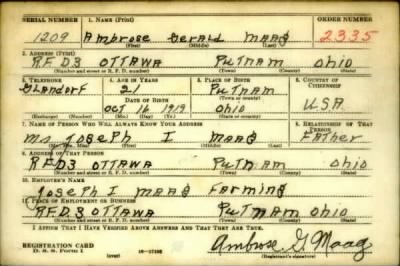 SERIAL NUMBER 1. NAME (Print) ORDER NUMBER
1209 Ambrose Gerald Maag 2335
(First) (Middle) (Last)
2. ADDRESS (Print)
RFD3 OTTAWA PUTNAM Ohio
(Number and street or R. F. D. number) (Town) (County) (State)
3. TELEPHONE 4. AGE IN YEARS 5. PLACE OF BIRTH 6. COUNTRY OF CITIZENSHIP
GLANDORF 21 PUTNAM
DATE OF BIRTH (Town or county)
OCT 16 1919 Ohio U.S.A.
(Exchange) (Number) (Mo.) (Day) (Yr.) (State or country)
7. NAME OF PERSON WHO WILL ALWAYS KNOW YOUR ADDRESS 8. RELATIONSHIP OF THAT PERSON
Mr Joseph I Maag Father
(Mr., Mrs., Miss) (First) (Middle) (Last)
9. ADDRESS OF THAT PERSON
RFD3 OTTAWA PUTNAM Ohio
(Number and street or R. F. D. number) (Town) (County) (State)
10. EMPLOYER'S NAME
Joseph I Maag Farming
11. PLACE OF EMPLOYMENT OR BUSINESS
RFD3 OTTAWA PUTNAM Ohio
(Number and street or R. F. D. number) (Town) (County) (State)
I AFFIRM THAT I HAVE VERIFIED ABOVE ANSWERS AND THAT THEY ARE TRUE.
REGISTRATION CARD
D. S. S. Form 1 (over) Ambrose G. Maag
(Registrant's signature)